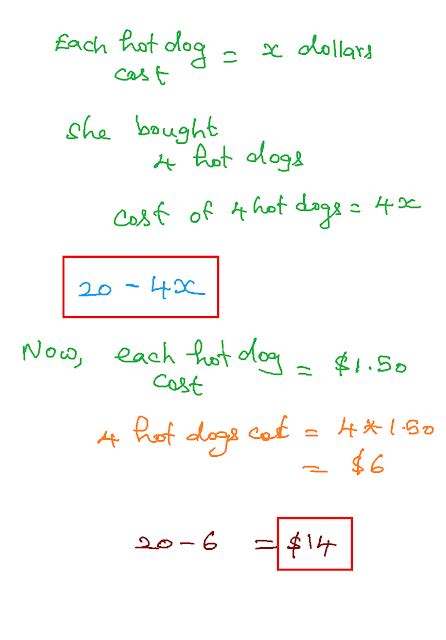 Each hot dog = x dollars
cost
She bought
4 hot dogs
cost of 4 hot dogs = 4x
20 - 4x
Now, each hot dog = $1.50
cost
4 hot dogs cost = 4*1.50
= $6
20-6 = $14